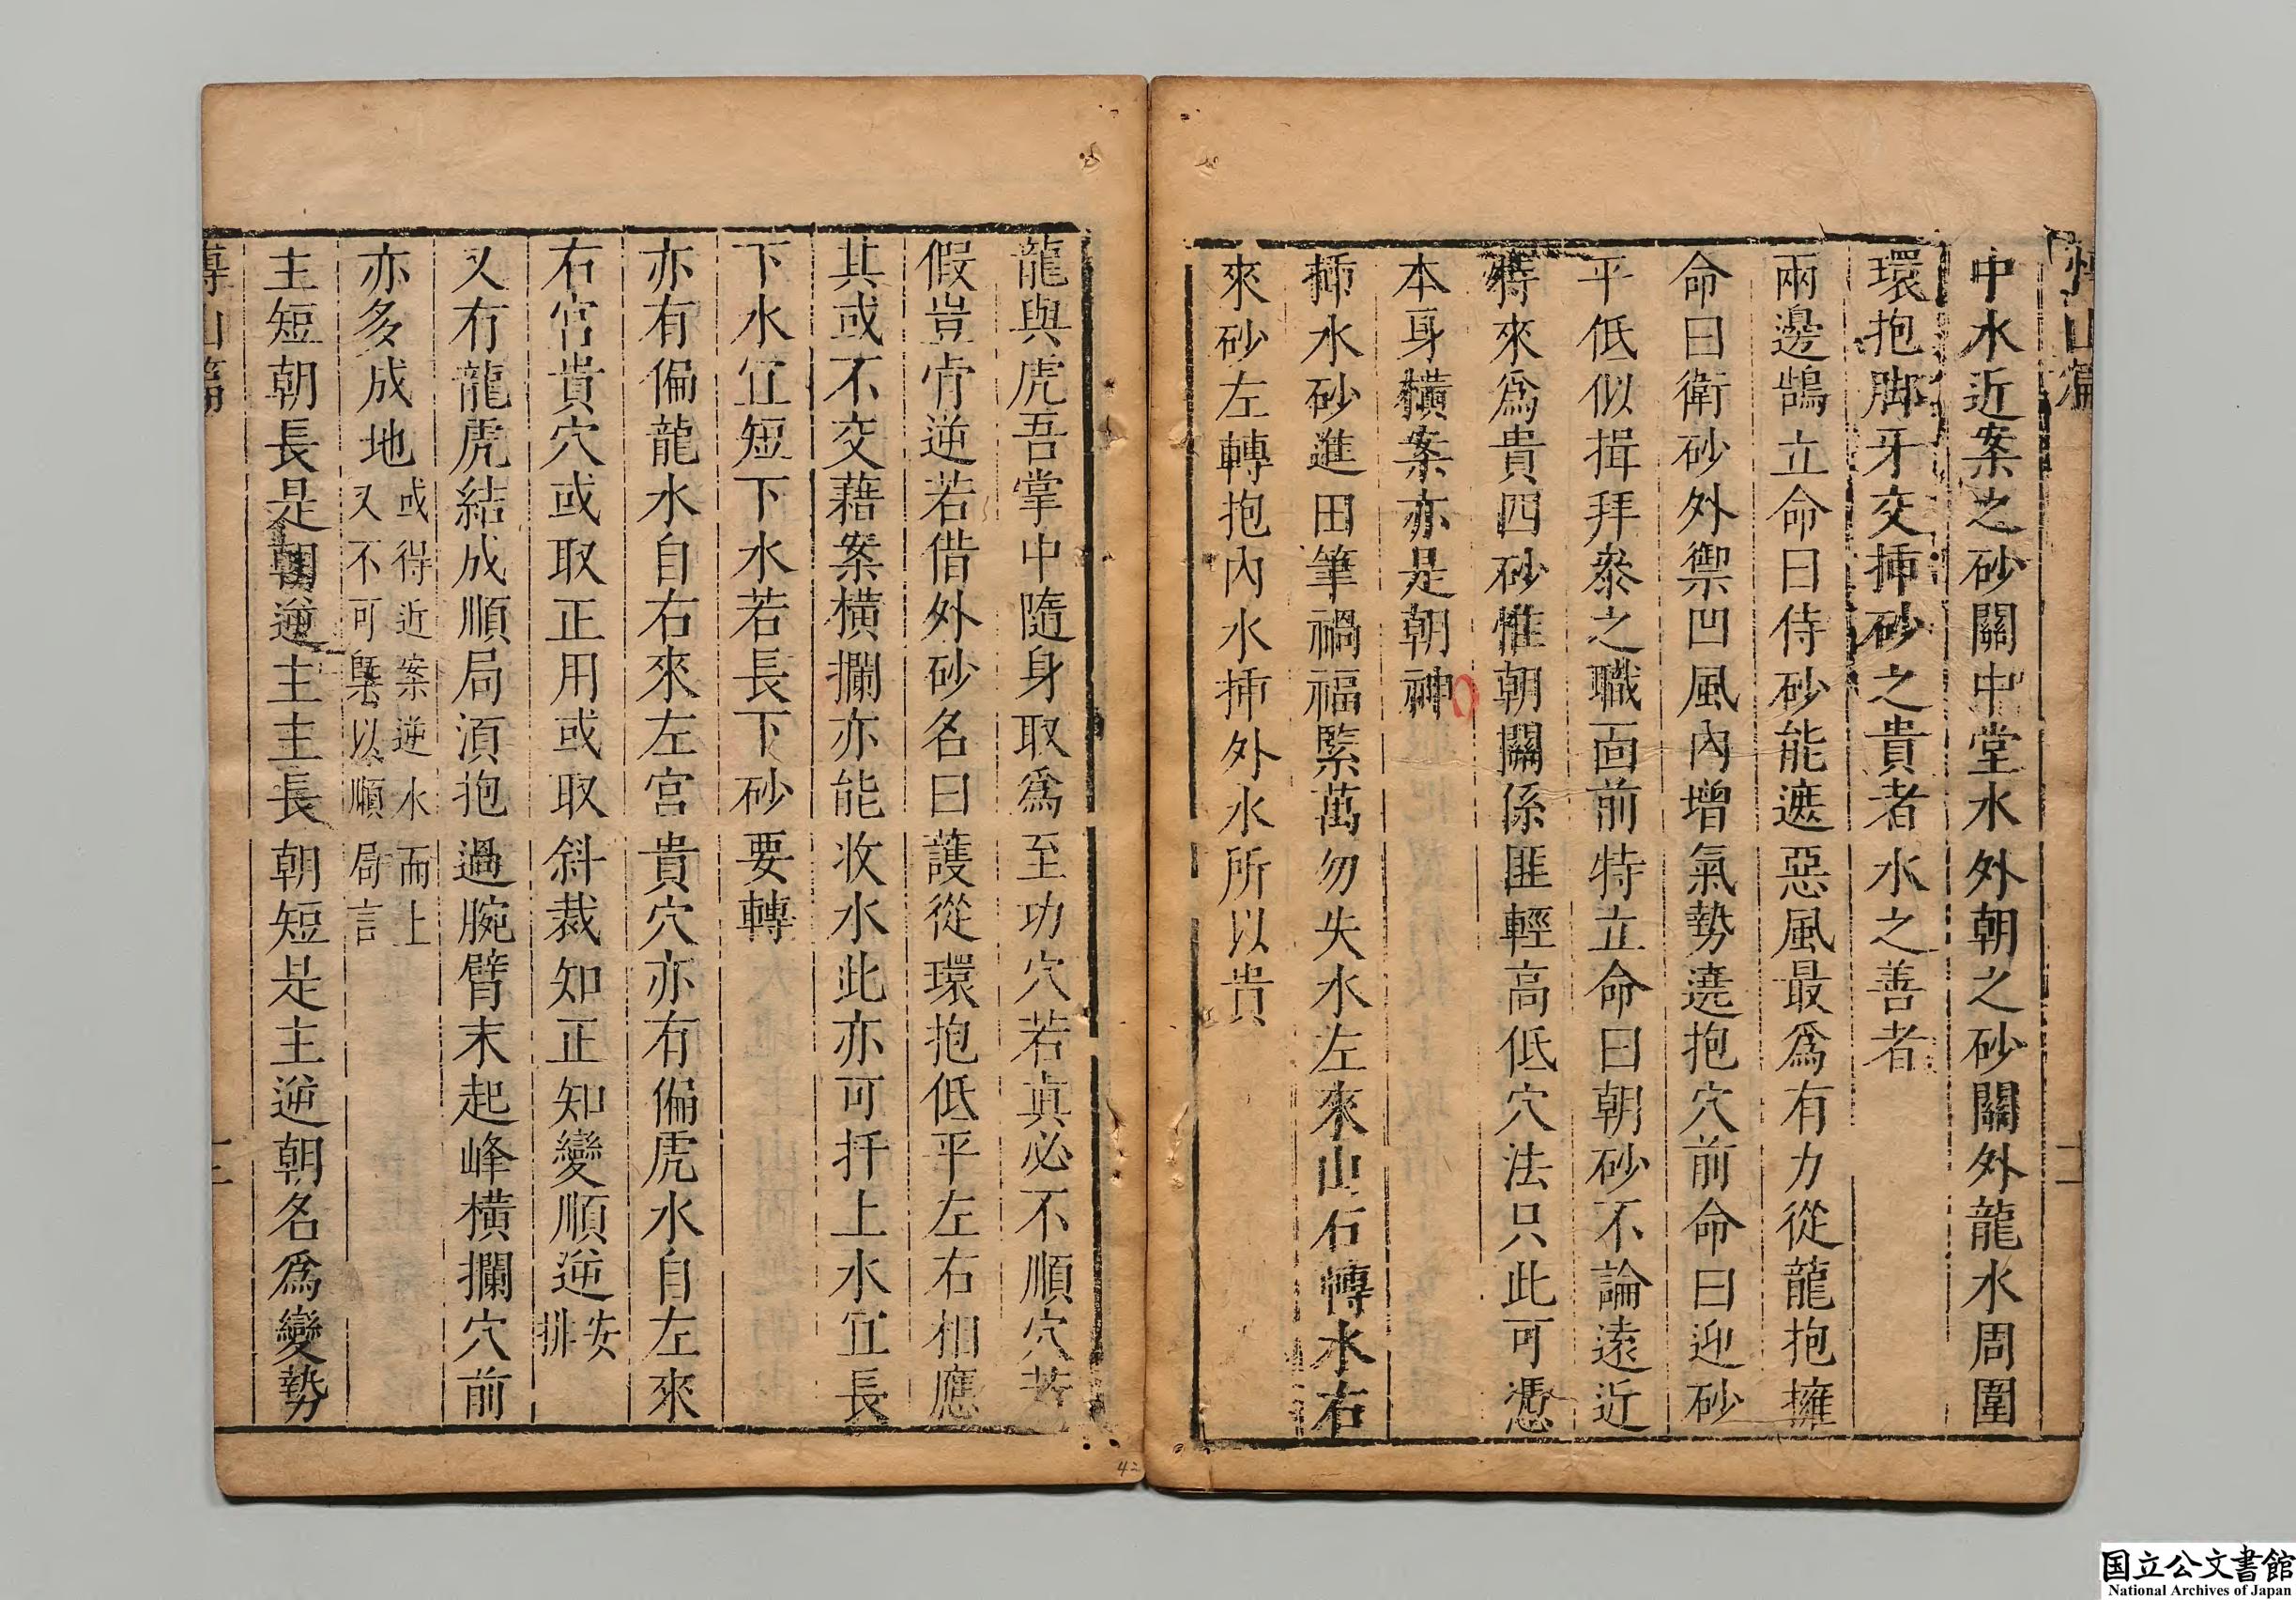 山篇
二
中水近案之砂關中堂水外朝之砂關外龍水周圍
環抱脚牙交揷砂之貴者水之善者
兩邊鵠立命曰侍砂能遮惡風最爲有力從龍抱擁
命曰衛砂外禦凹風內增氣勢遶抱穴前命曰迎砂
平低似揖拜叅之職面前特立命曰朝砂不論遠近
特來爲貴四砂惟朝關係匪輕高低穴法只此可憑
本身橫案亦是朝神
揷水砂進田筆禍福緊萬勿失水左來山右轉水右
來砂左轉抱內水揷外水所以貴
龍與虎吾掌中隨身取爲至功穴若眞必不順穴若
假豈肯逆若借外砂名曰護從環抱低平左右相應
其或不交藉案橫攔亦能收水此亦可扦上水宜長
下水宜短下水若長下砂要轉
亦有偏龍水自右來左宮貴穴亦有偏虎水自左來
右宮貴穴或取正用或取斜裁知正知變順逆安排
又有龍虎結成順局湏抱過腕臂末起峰橫攔穴前
亦多成地或得近案逆水而上又不可槩以順局言
主短朝長是朝逆主主長朝短是主逆朝名爲變勢
山篇
三
42
国立公文書館
National Archives of Japan